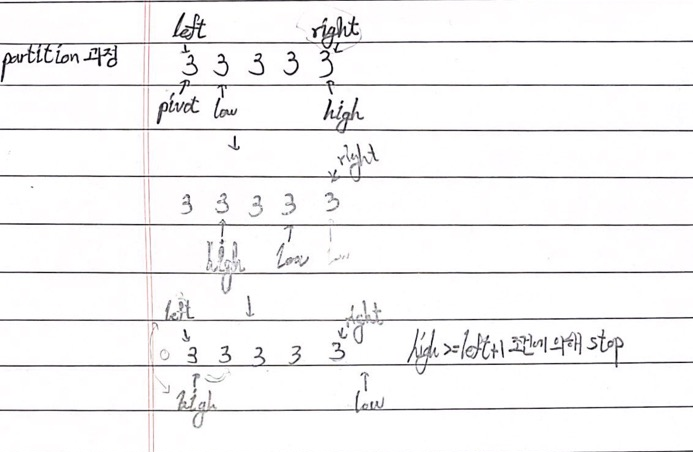 left right
partition 과정 3 3 3 3 3
pivot low high
right
3 3 3 3 3
high low low
left right
3 3 3 3 3 high>=left+1 조건에 의해 stop
high low